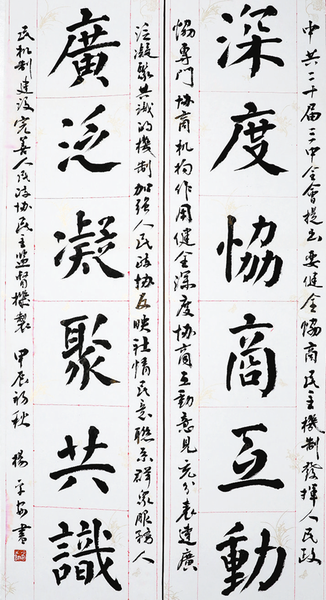 深度協商互動
中共二十届三中全會提出要健全協民主機制發揮人民政
協專門協商机构作用健全深度協商互動意見充分表達廣
廣泛凝聚共識
泛凝聚共識的機制加强人民政协反映社情民意聯系群眾服務人
民机制建设完善人民政协民主监督機製 甲辰初秋 楊平安書